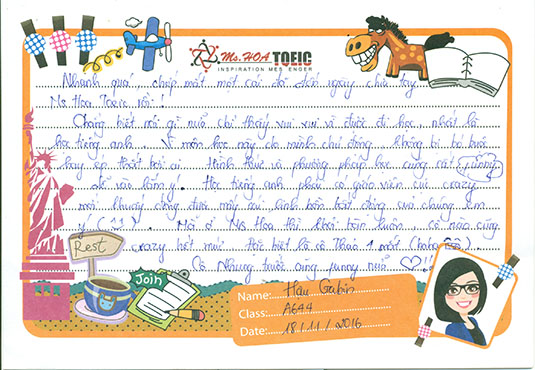 Ms. HOA TOEIC
INSPIRATION MESSENGER
Nhanh quá, chớp mắt một cái đã đến ngày chia tay
Ms Hoa Toeic rồi !
Chẳng biết nói gì nữa chỉ thấy vui vui vì được đi học, nhất là
học tiếng anh . Vì môn học này do mình chủ động không bị bó buộc
hay ép thoát bởi ai. Hình thức và phương pháp học cũng rất funny
dễ vào lắm ý. Học tiếng anh phải có giáo viên cực crazy
mới khuấy động được mấy cái linh hồn bất động của chúng em
ý (:)) ). Mà ở Ms Hoa thì khỏi bàn luôn, cô nào cũng
crazy hết mức. Đặc biệt là cô Thảo
Cô Nhung trước cũng funny nữa ♡ !!
Rest
Join
Name: Hậu Gubin
Class: A644
Date: 18/11/2016